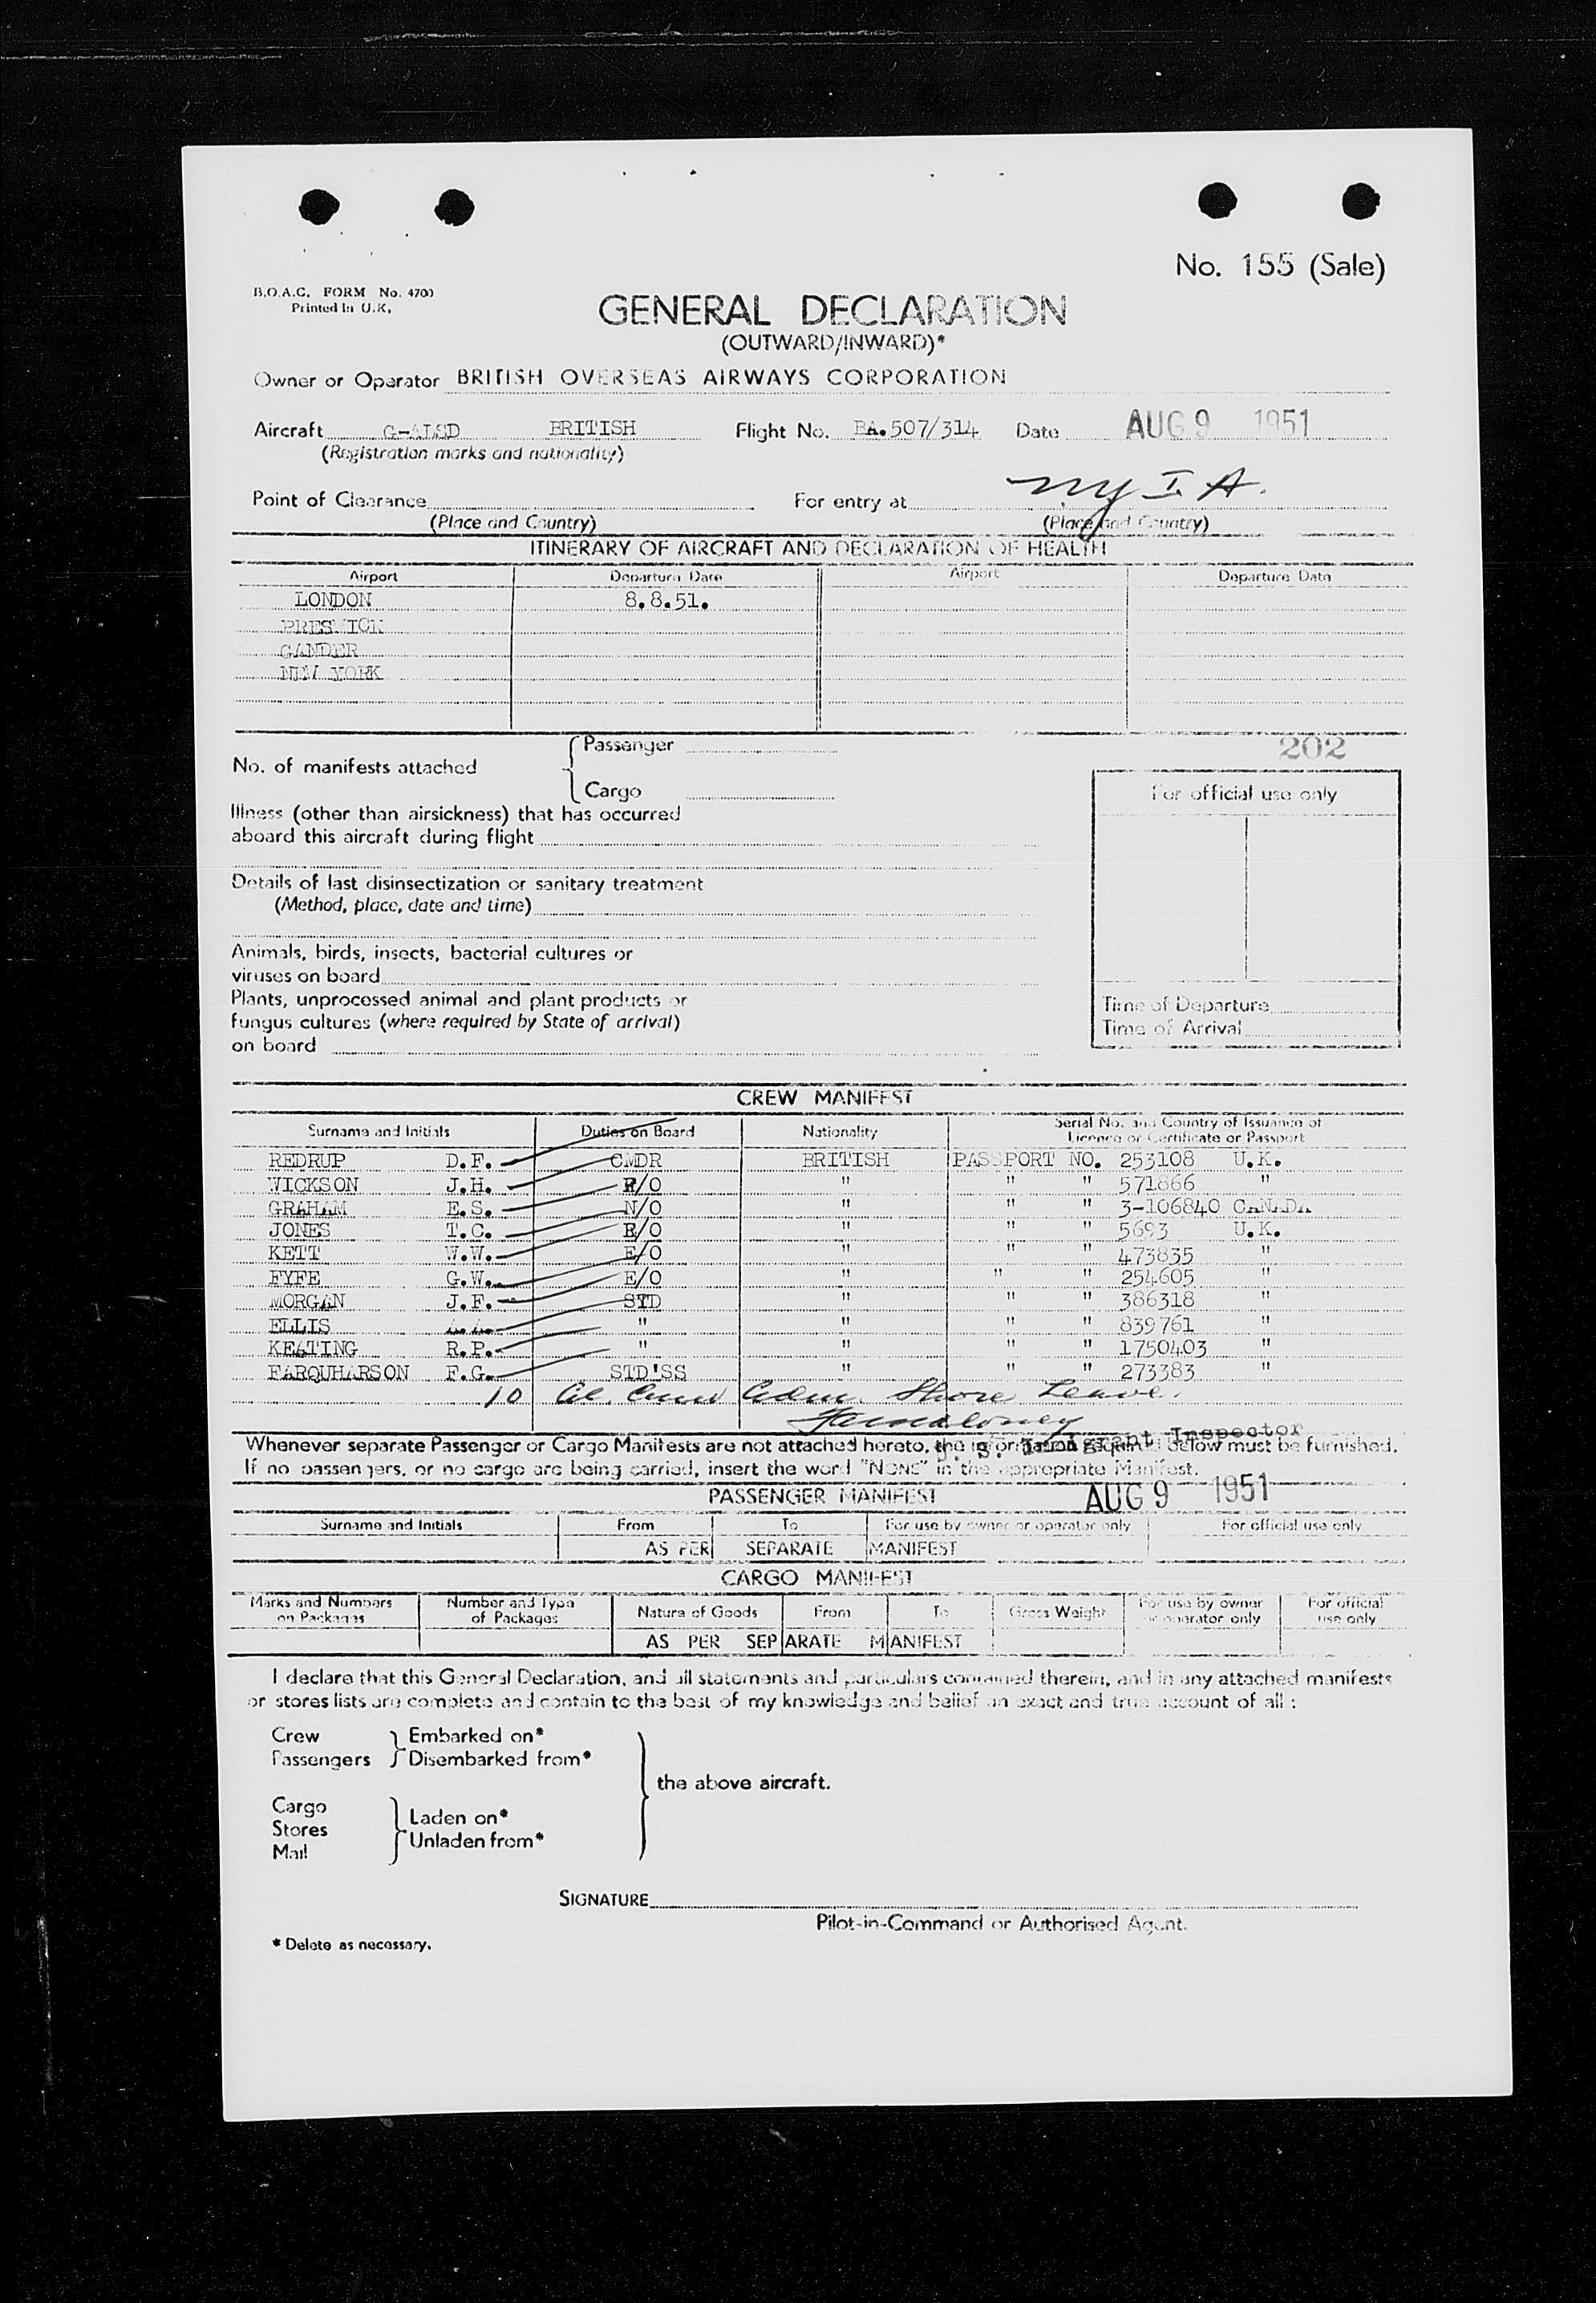 No. 155 (Sale)
B.O.A.C. FORM No. 4700
Printed in U.K.
GENERAL DECLARATION
(OUTWARD/INWARD)*
Owner or Operator BRITISH OVERSEAS AIRWAYS CORPORATION
Aircraft G-ALSD BRITISH Flight No. BA.507/314 Date AUG 9 1951
(Registration marks and nationality)
Point of Clearance For entry at NY I A.
(Place and Country) (Place and Country)
ITINERARY OF AIRCRAFT AND DECLARATION OF HEALTH
Airport Departure Date Airport Departure Date
LONDON 8.8.51.
PRESTWICK
GANDER
NEW YORK
202
No. of manifests attached { Passenger
Cargo
For official use only
Illness (other than airsickness) that has occurred
aboard this aircraft during flight
Details of last disinsectization or sanitary treatment
(Method, place, date and time)
Animals, birds, insects, bacterial cultures or
viruses on board
Plants, unprocessed animal and plant products or
fungus cultures (where required by State of arrival)
on board
Time of Departure
Time of Arrival
CREW MANIFEST
Surname and Initials Duties on Board Nationality Serial No. and Country of Issuance of
Licence or Certificate or Passport
REDRUP D.F. CMDR BRITISH PASSPORT NO. 253108 U.K.
WICKSON J.H. F/O " " " 571866 "
GRAHAM E.S. N/O " " " 3-106840 CANADA
JONES T.C. R/O " " " 5693 U.K.
KETT W.W. E/O " " " 473835 "
FYFE G.W. E/O " " " 254605 "
MORGAN J.F. STD " " " 386318 "
ELLIS A.A. " " " " 839761 "
KEATING R.P. " " " " 1750403 "
FARQUHARSON F.G. STD'SS " " " 273383 "
10 Al. Crew Adm. Shore Leave.
U. S. Immigrant Inspector
Whenever separate Passenger or Cargo Manifests are not attached hereto, the information required below must be furnished.
If no passengers, or no cargo are being carried, insert the word "NONE" in the appropriate Manifest.
PASSENGER MANIFEST AUG 9 1951
Surname and Initials From To For use by owner or operator only For official use only
AS PER SEPARATE MANIFEST
CARGO MANIFEST
Marks and Numbers on Packages Number and Type of Packages Nature of Goods From To Gross Weight For use by owner or operator only For official use only
AS PER SEPARATE MANIFEST
I declare that this General Declaration, and all statements and particulars contained therein, and in any attached manifests
or stores lists are complete and contain to the best of my knowledge and belief an exact and true account of all :
Crew } Embarked on*
Passengers } Disembarked from*
the above aircraft.
Cargo
Stores } Laden on*
Mail } Unladen from*
SIGNATURE
Pilot-in-Command or Authorised Agent.
* Delete as necessary.